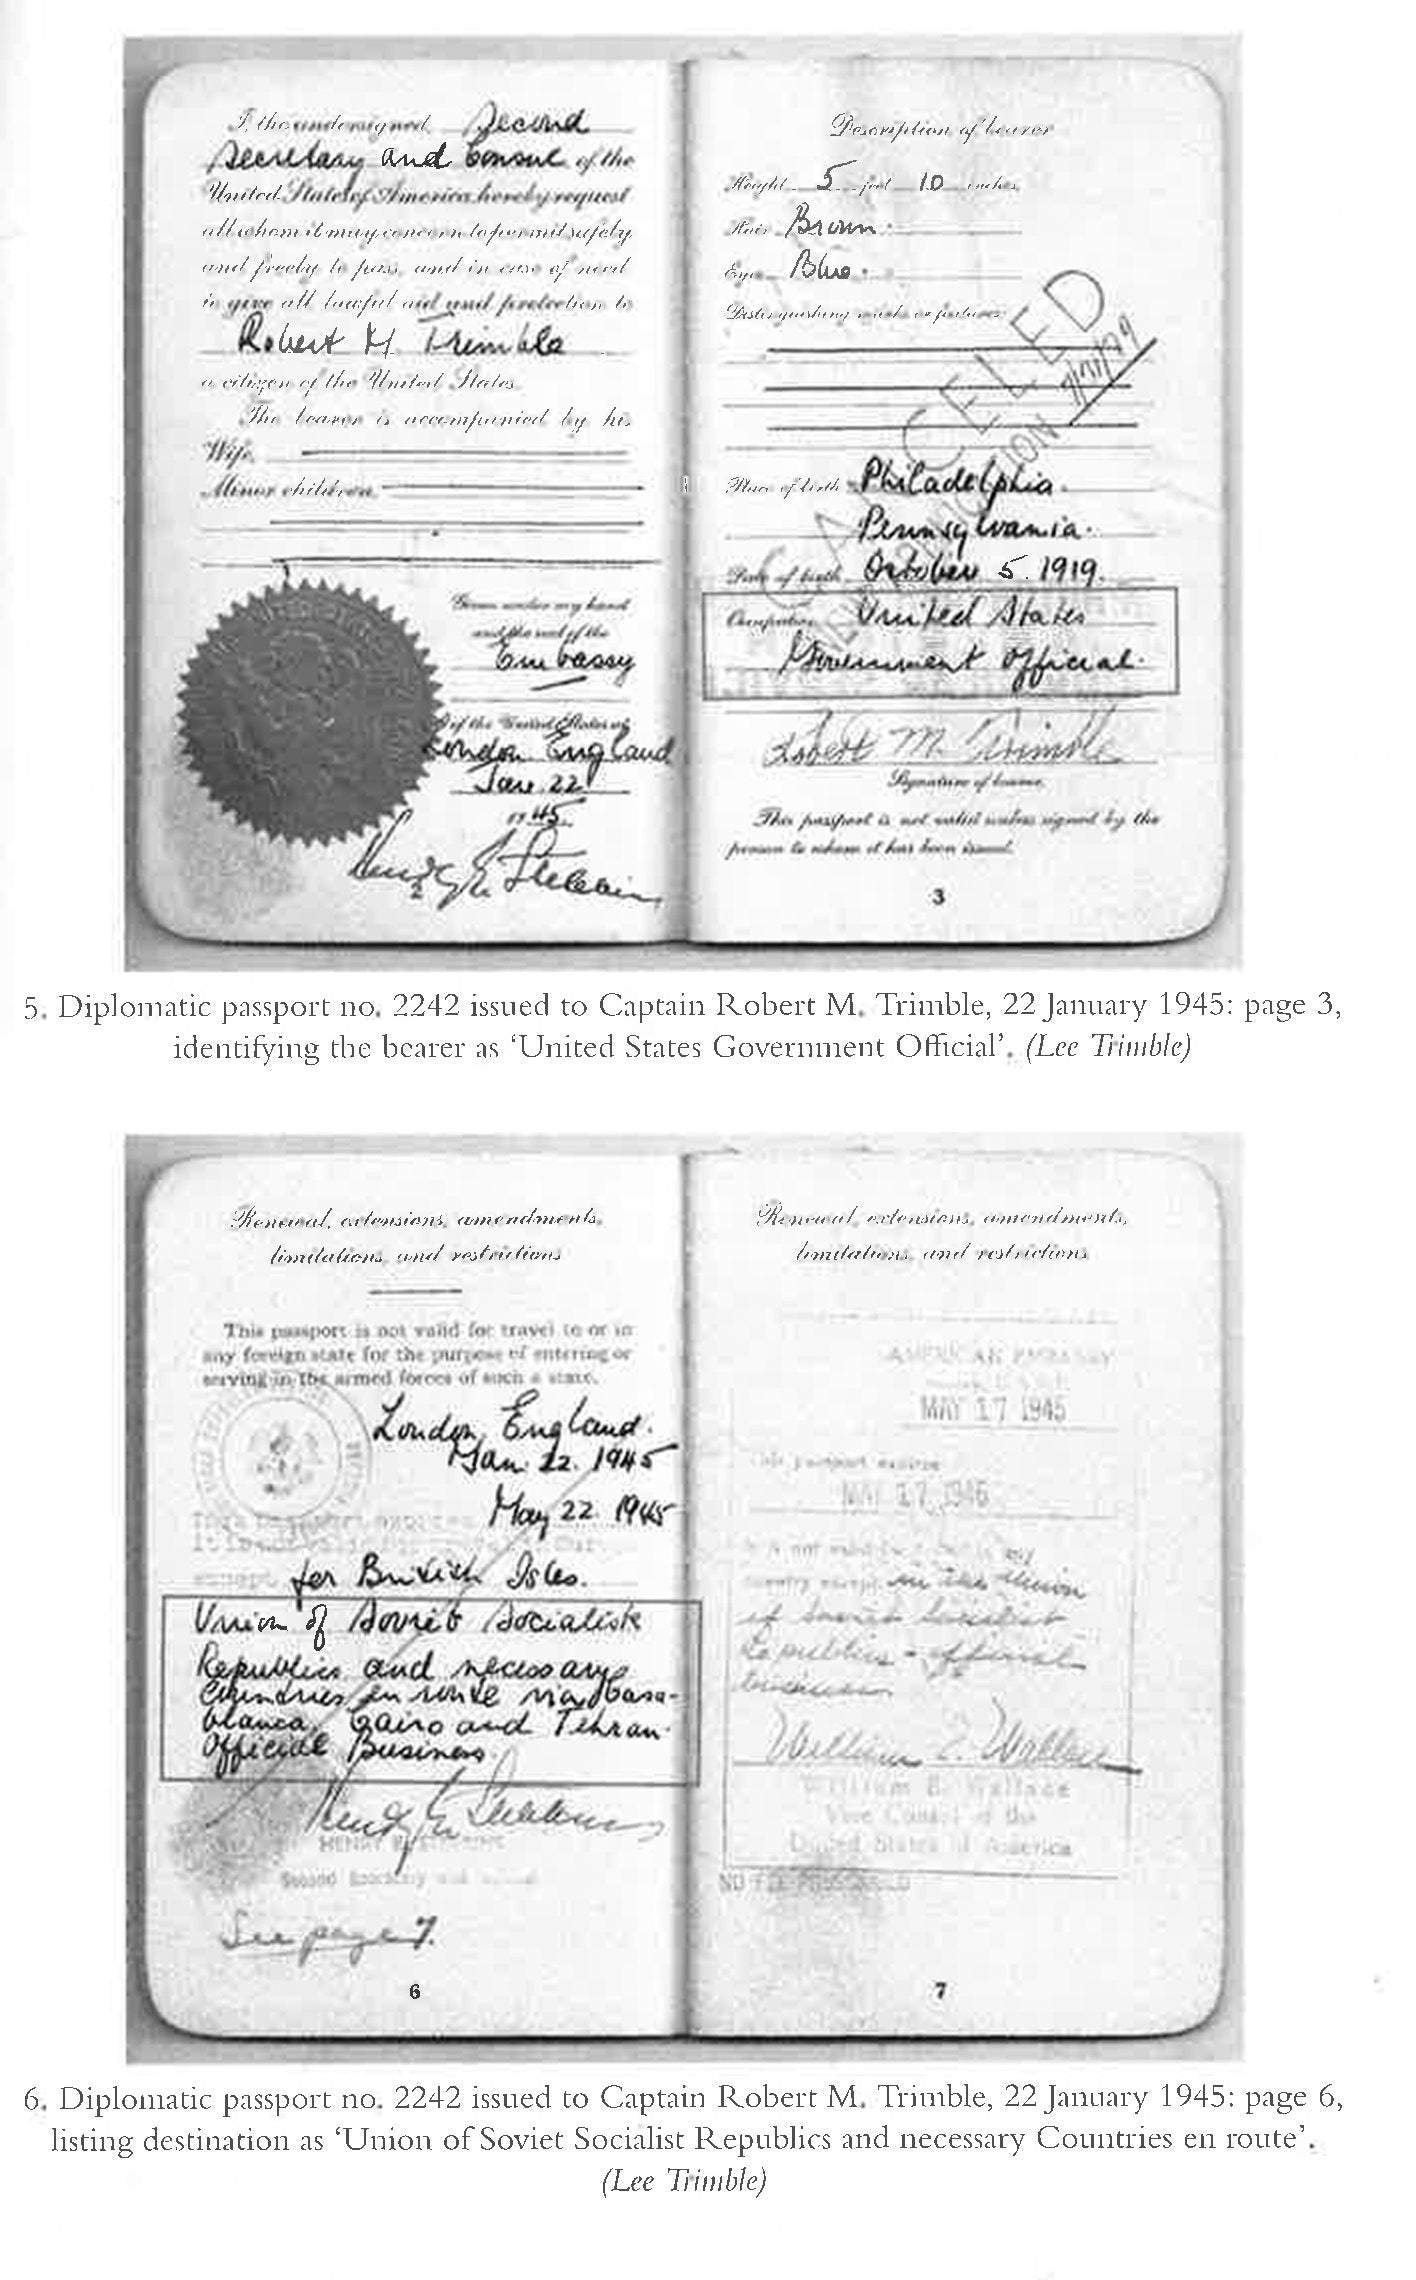 I, the undersigned, Second
Secretary and Consul of the
United States of America, hereby request
all whom it may concern to permit safely
and freely to pass, and in case of need
to give all lawful aid and protection to
Robert M. Trimble
a citizen of the United States.
The bearer is accompanied by his
Wife,
Minor children,
Given under my hand
and the seal of the
Embassy
of the United States at
London England
Jan. 22
1945.
Henry E. Stebbins
2
Description of bearer
Height 5 feet 10 inches
Hair Brown
Eyes Blue
Distinguishing marks or features:
CANCELED
Place of birth Philadelphia
Pennsylvania
Date of birth October 5. 1919.
Occupation United States
Government Official
Robert M. Trimble
Signature of bearer.
This passport is not valid unless signed by the
person to whom it has been issued.
3
5. Diplomatic passport no. 2242 issued to Captain Robert M. Trimble, 22 January 1945: page 3,
identifying the bearer as ‘United States Government Official’. (Lee Trimble)
Renewal, extensions, amendments,
limitations, and restrictions
This passport is not valid for travel to or in
any foreign state for the purpose of entering or
serving in the armed forces of such a state.
London, England.
Jan. 22. 1945
May 22. 1945
for British Isles.
Union of Soviet Socialist
Republics and necessary
Countries en route via Casa-
blanca, Cairo and Tehran.
Official Business.
Henry E. Stebbins
See page 7.
6
Renewal, extensions, amendments,
limitations, and restrictions
AMERICAN EMBASSY
MAY 17 1945
This passport expires
MAY 17 1946
in the Union
of Soviet Socialist
Republics - official
business
William E. Wallace
William E. Wallace
Vice Consul of the
United States of America
7
6. Diplomatic passport no. 2242 issued to Captain Robert M. Trimble, 22 January 1945: page 6,
listing destination as ‘Union of Soviet Socialist Republics and necessary Countries en route’.
(Lee Trimble)